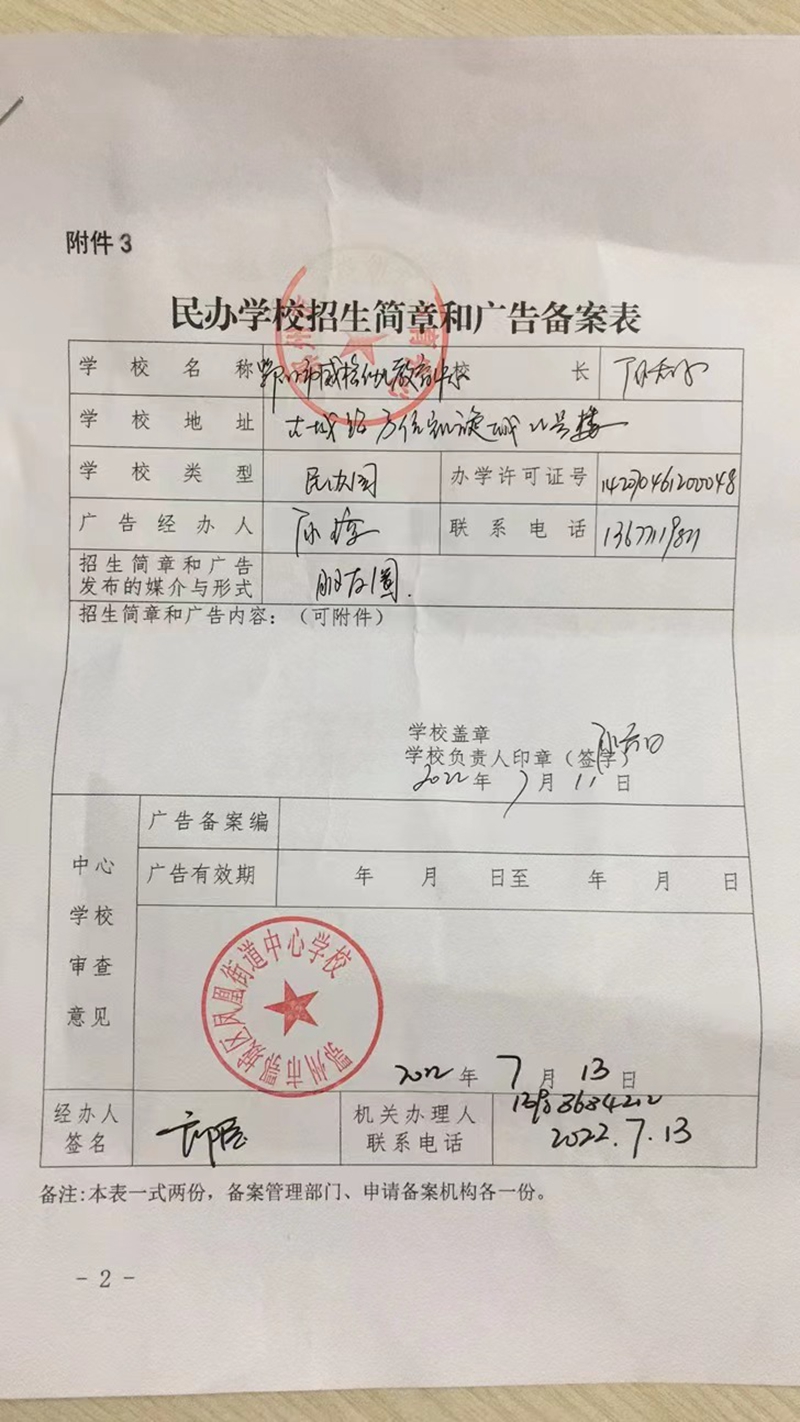 附件3
民办学校招生简章和广告备案表
学校名称 鄂州市 教育中心 校长
学校地址 古城路 号楼
学校类型 民办园 办学许可证号
广告经办人 联系电话
招生简章和广告
发布的媒介与形式 朋友圈.
招生简章和广告内容：（可附件）
学校盖章
学校负责人印章（签字）
2022年7月11日
中心
学校
审查
意见
广告备案编
广告有效期 年 月 日至 年 月 日
鄂州市鄂城区凤凰街道中心学校
2022年7月13日
经办人
签名
机关办理人
联系电话
2022.7.13
备注:本表一式两份，备案管理部门、申请备案机构各一份。
- 2 -